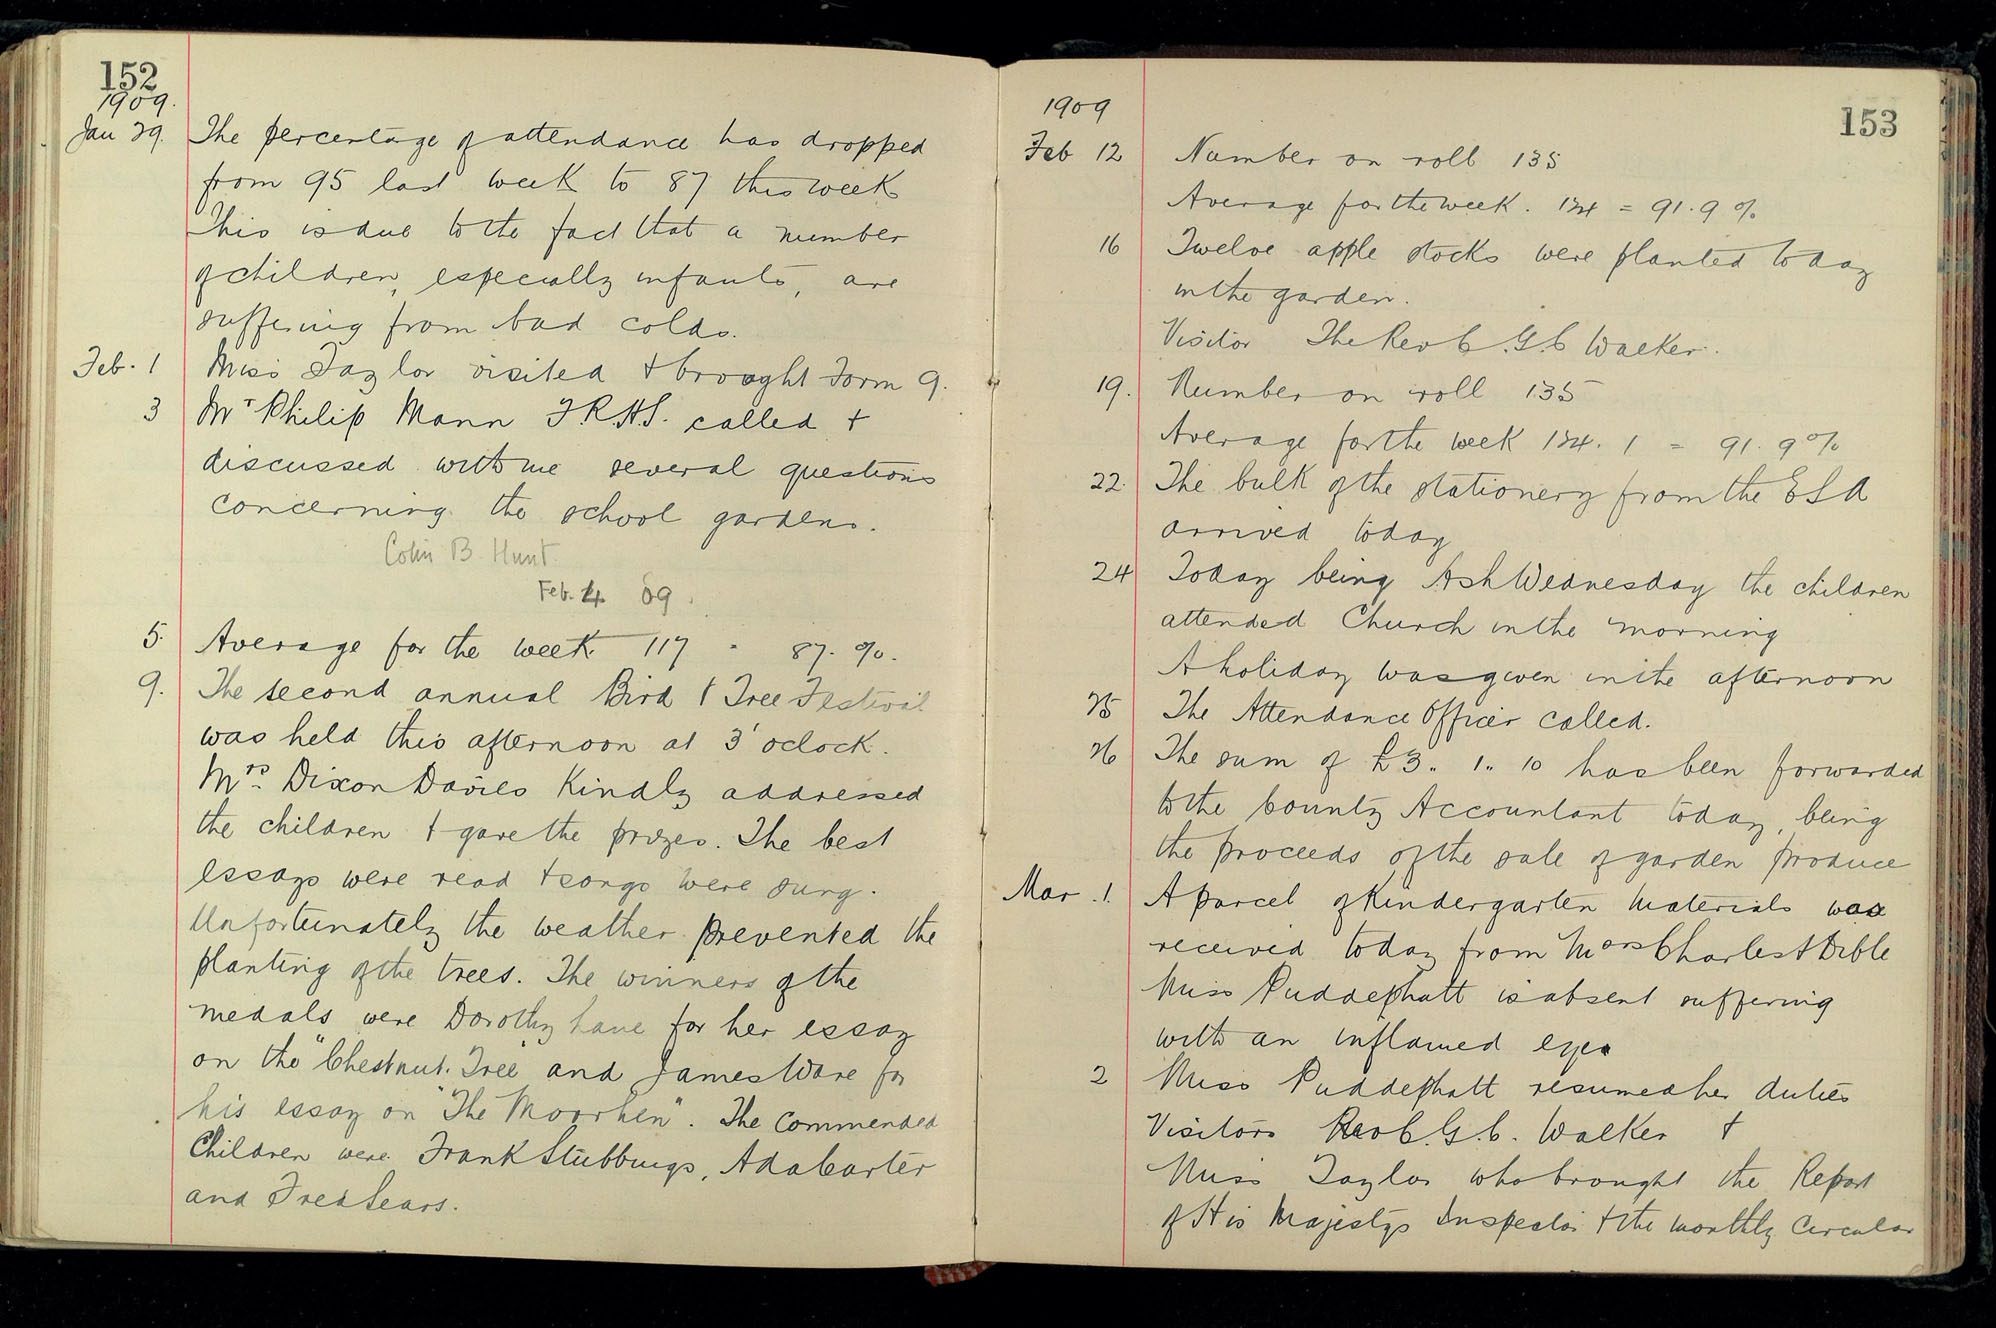 152
1909.
Jan 29. The percentage of attendance has dropped
from 95 last week to 87 this week
This is due to the fact that a number
of children, especially infants, are
suffering from bad colds.
Feb. 1 Miss Taylor visited & brought Form 9.
3 Mr Philip Mann F.R.H.S. called &
discussed with me several questions
concerning the school gardens.
Colin B. Hunt
Feb. 4 09.
5. Average for the week 117 - 87. %.
9. The second annual Bird & Tree Festival
was held this afternoon at 3 'oclock.
Mrs. Dixon Davies kindly addressed
the children & gave the prizes. The best
essays were read & songs were sung.
Unfortunately the weather prevented the
planting of the trees. The winners of the
medals were Dorothy Lane for her essay
on the "Chestnut Tree" and James Ware for
his essay on "The Moorhen". The commended
Children were Frank Stubbings, Ada Carter
and Fred Sears.
153
1909
Feb 12 Number on roll 135
Average for the week. 124 = 91.9 %
16 Twelve apple stocks were planted today
in the garden.
Visitor The Rev C. G. C Walker.
19. Number on roll 135
Average for the week 124. 1 = 91. 9 %
22. The bulk of the stationery from the E S A
arrived today
24 Today being Ash Wednesday the children
attended Church in the morning
A holiday was given in the afternoon
25 The Attendance Officer called.
26 The sum of £3. 1. 10 has been forwarded
to the County Accountant today, being
the proceeds of the sale of garden produce
Mar. 1. A parcel of Kindergarten Materials was
received today from Messrs Charles & Dible
Miss Puddephatt is absent suffering
with an inflamed eye
2 Miss Puddephatt resumed her duties
Visitors Rev C. G. C. Walker &
Miss Taylor who brought the Report
of His Majesty's Inspector & the monthly Circular